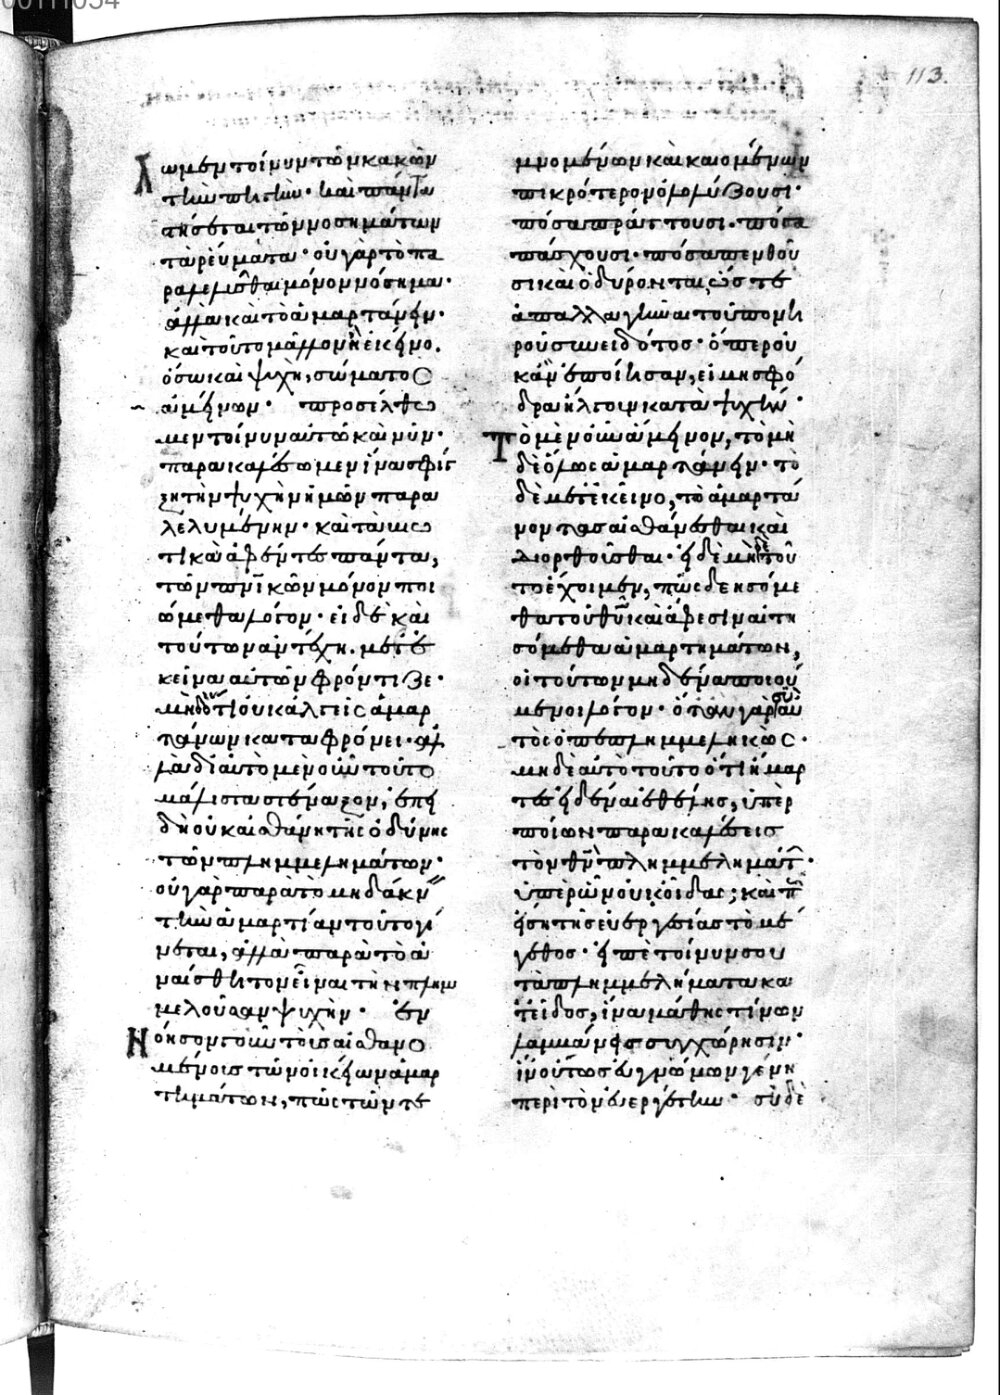 113.
λωμεν τοίνυν τῶν κακῶν
τὴν πηγὴν· καὶ πάντα
στήσεται τῶν νοσημάτων
τὰ ῥεύματα· οὐ γὰρ τὸ πα
ραλελύσθαι μόνον νόσημα·
ἀλλὰ καὶ τὸ ἁμαρτάνειν·
καὶ τοῦτο μᾶλλον ἢ ἐκεῖνο.
ὅσω καὶ ψυχὴ, σώματος
ἀμείνων· προσέλθω
μεν τοίνυν αὐτῶ καὶ νῦν·
παρακαλέσωμεν ἵνα σφίγ
ξη τὴν ψυχὴν ἡμῶν παρα
λελυμένην· καὶ τὰ βιω
τικὰ ἀφέντες πάντα,
τῶν πνικῶν μόνον ποι
ώμεθα λόγον· εἰ δὲ καὶ
τούτων ἀντέχη. μετ' ἐ
κεῖνα αὐτῶν φρόντιζε·
μηδ' ὅτι οὐκ ἀλγεῖς ἁμαρ
τάνων καταφρόνει· ἀλ
λὰ δι' αὐτὸ μὲν οὖν τοῦτο
μάλιστα στέναξον, ἐπει
δὴ οὐκ αἰσθάνη τῆς ὀδύνης
τῶν πλημμελημάτων·
οὐ γὰρ παρὰ τὸ μὴ δάκνειν
τὴν ἁμαρτίαν τοῦτο γί
νεται, ἀλλὰ παρὰ τὸ ἀ
ναίσθητον εἶναι τὴν πλημ
μελοῦσαν ψυχὴν· ἐν
νόησον γοῦν τοὺς αἰσθανο
μένοις τῶν οἰκείων ἁμαρ
τημάτων, πῶς τῶν τε
μνομένων καὶ καιομένων
πικρότερον ὀλολύζουσι·
πόσα πράττουσι· πόσα
πάσχουσι· πόσα πενθοῦ
σι καὶ ὀδύρονται, ὥστε
ἀπαλλαγῆναι τοῦ πονη
ροῦ συνειδότος· ὅπερ οὐ
κ ἂν ἐποίησαν, εἰ μὴ σφό
δρα ἤλγουν κατὰ ψυχὴν·
Τὸ μὲν οὖν ἄμεινον, τὸ μη
δὲ ὅλως ἁμαρτάνειν· τὸ
δὲ μετ' ἐκεῖνο, τὸ ἁμαρτά
νοντας αἰσθάνεσθαι καὶ
διορθοῦσθαι· εἰ δὲ μηδὲ τοῦ
το ἔχοιμεν, πῶς δεησόμε
θα τοῦ θῦ καὶ ἄφεσιν αἰτη
σόμεθα ἁμαρτημάτων,
οἱ τούτων μηδένα ποιού
μενοι λόγον· ὅταν γὰρ σὺ αὐ
τὸς ὁ πεπλημμεληκὼς·
μηδὲ αὐτὸ τοῦτο ὅτι ἥμαρ
τες εἰδέναι ἐθέλης, ὑπὲρ
ποίων παρακαλέσεις
τὸν θν πλημμελημάτ·
ὑπὲρ ὧν οὐκ οἶδας; καὶ π
είση τῆς εὐεργεσίας τὸ μέ
γεθος· εἰπὲ τοίνυν σου
τὰ πλημμελήματα κα
τ' εἶδος, ἵνα μάθης τίνων
λαμβάνεις συγχώρησιν·
ἵν' οὕτως εὐγνώμων γένη
περὶ τὸν εὐεργέτην· σὺ δὲ